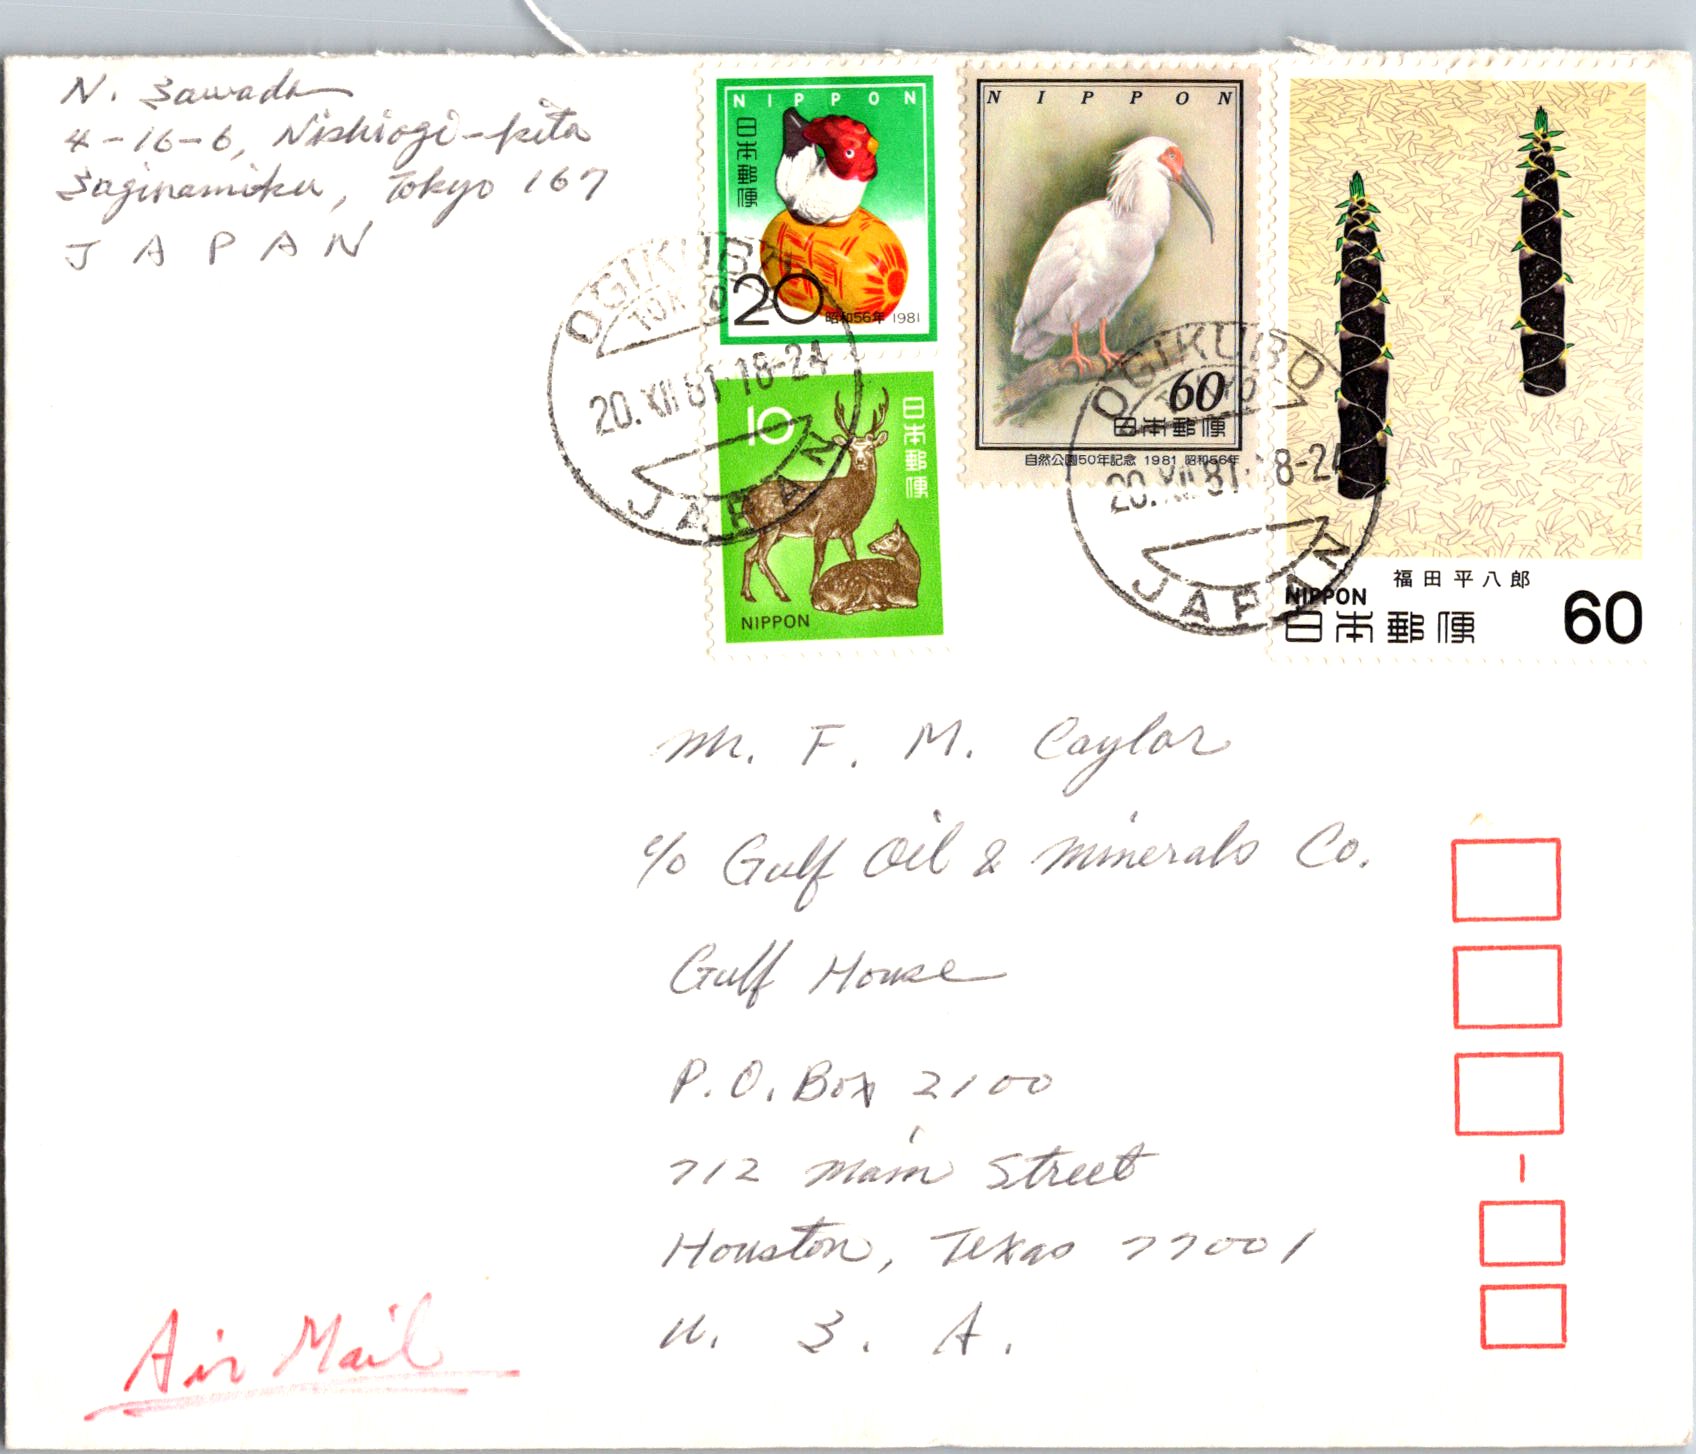 N. Sawada
4-16-6, Nishiogi-kita
Suginamiku, Tokyo 167
JAPAN
NIPPON
日本郵便
20
昭和56年 1981
10
日本郵便
NIPPON
NIPPON
60
日本郵便
自然公園50年記念 1981 昭和56年
福田平八郎
NIPPON
日本郵便
60
OGIKUBO
TOKYO
20.XII.81.18-24
JAPAN
OGIKUBO
TOKYO
20.XII.81.18-24
JAPAN
Mr. F. M. Caylor
c/o Gulf Oil & Minerals Co.
Gulf House
P.O. Box 2100
712 Main Street
Houston, Texas 77001
U. S. A.
Air Mail